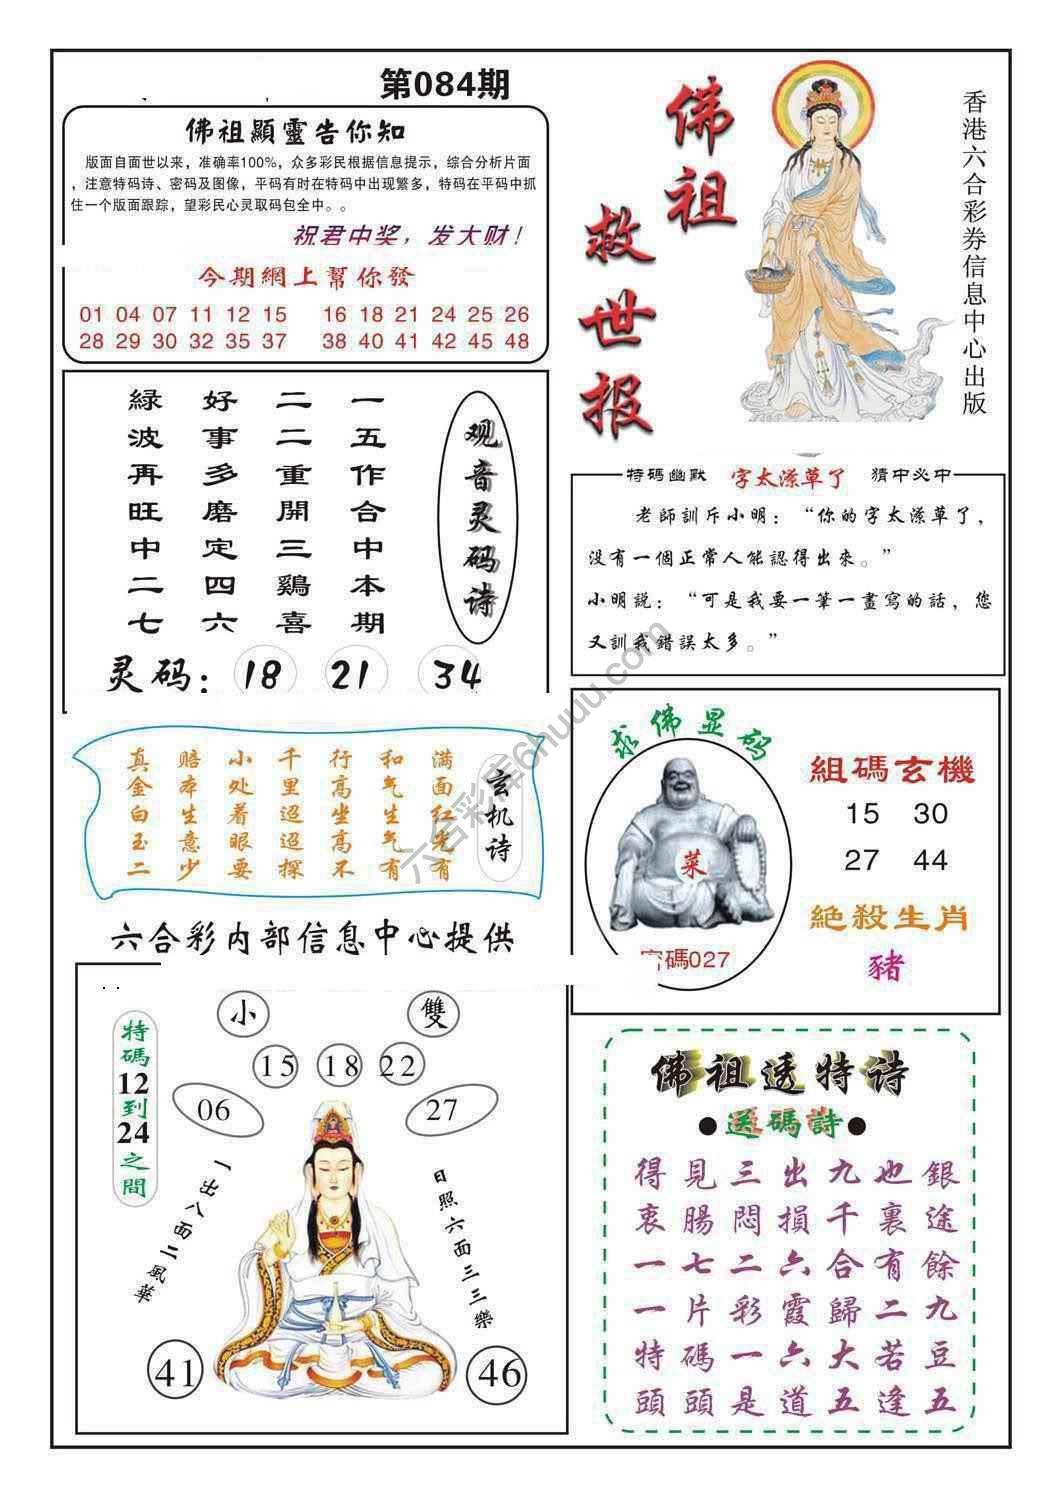 第084期
佛祖顯靈告你知
版面自面世以来，准确率100%，众多彩民根据信息提示，综合分析片面
，注意特码诗、密码及图像，平码有时在特码中出现繁多，特码在平码中抓
住一个版面跟踪，望彩民心灵取码包全中。。
祝君中奖，发大财！
今期網上幫你發
01 04 07 11 12 15 16 18 21 24 25 26
28 29 30 32 35 37 38 40 41 42 45 48
佛祖
救世报
香港六合彩券信息中心出版
观音灵码诗
一五作合中本期
二二重開三鷄喜
好事多磨定四六
緑波再旺中二七
灵码：18 21 34
特碼幽默 字太潦草了 猜中必中
老師訓斥小明：“你的字太潦草了，
没有一個正常人能認得出來。”
小明説：“可是我要一筆一畫寫的話，您
又訓我錯誤太多。”
玄机诗
满面红光有
和气生气有
行高坐高不
千里迢迢探
小处着眼要
赔本生意少
真金白玉二
六合彩内部信息中心提供
求佛显码
菜
密碼027
組碼玄機
15 30
27 44
絶殺生肖
豬
特碼12到24之間
小 雙
15 18 22
06 27
一出八面二風華
日照六面三三樂
41 46
佛祖透特诗
●送碼詩●
得見三出九也銀
衷腸悶損千裏途
一七二六合有餘
一片彩霞歸二九
特碼一六大若豆
頭頭是道五逢五
六合彩库6huuu.com